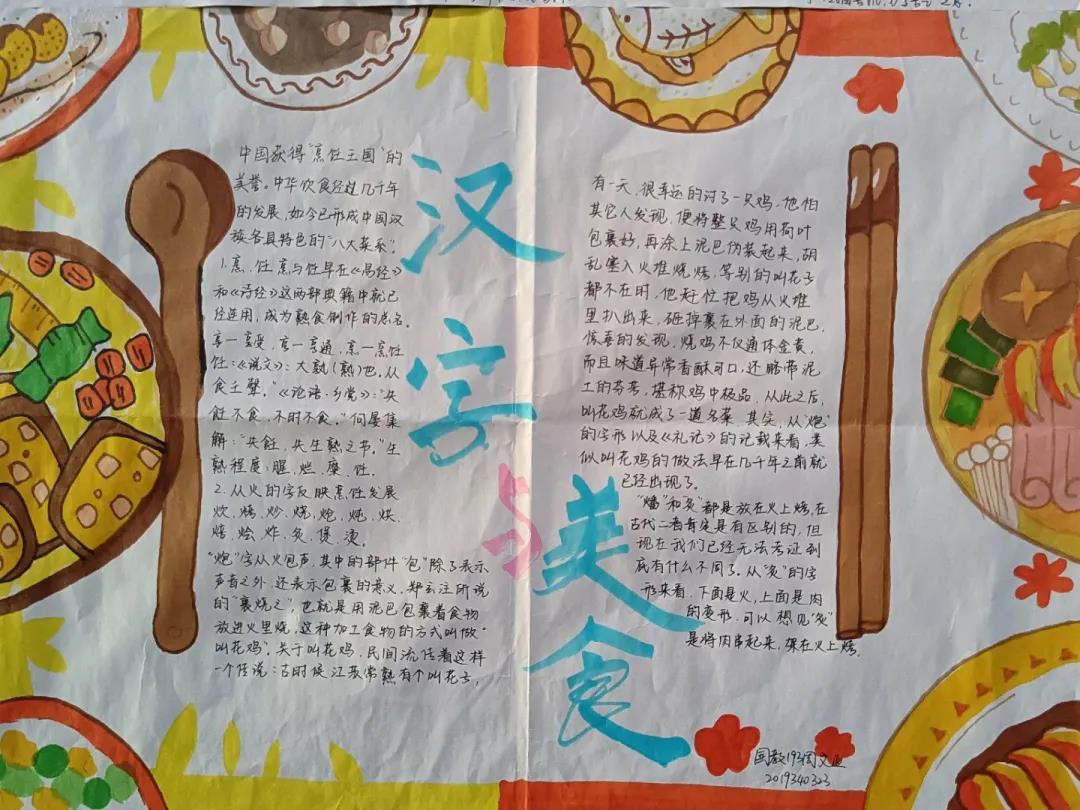 中国获得"烹饪王国"的
美誉。中华饮食经过几千年
的发展,如今已形成中国汉
族各具特色的"八大菜系"。
1.烹、饪,烹与饪早在《易经》
和《诗经》这两部典籍中就已
经连用,成为熟食制作的总名。
享一享受,亨一亨通,烹一烹饪
饪:《说文》:大熟(熟)也,从
食壬聲。"《论语·乡党》:"失
飪不食,不时不食。"何晏集
解:"失飪,失生熟之节。"生
熟程度:腥、烂、糜、饪。
2.从火的字反映烹饪发展
炊、烤、炒、烧、炮、炖、烘、
焙、烩、炸、炙、煲、烫。
"炮"字从火包声,其中的部件"包"除了表示
声音之外,还表示包裹的意义,郑玄注所说
的"裹烧之",也就是用泥巴包裹着食物
放进火里烧,这种加工食物的方式叫做"
叫花鸡"。关于叫花鸡,民间流传着这样
一个传说:古时候江苏常熟有个叫花子,
汉
字
与
美
食
有一天,很幸运的讨了一只鸡,他怕
其它人发现,便将整只鸡用荷叶
包裹好,再涂上泥巴伪装起来,胡
乱塞入火堆烧烤,等别的叫花子
都不在时,他赶忙把鸡从火堆
里扒出来,砸掉裹在外面的泥巴,
惊喜的发现,烧鸡不仅通体金黄,
而且味道异常香酥可口,还略带泥
土的芬芳,堪称鸡中极品,从此之后,
叫花鸡就成了一道名菜 其实,从"炮"
的字形以及《礼记》的记载来看,类
似叫花鸡的做法早在几千年之前就
已经出现了。
"燔"和"炙"都是放在火上烤,在
古代二者肯定是有区别的,但
现在我们已经无法考证到
底有什么不同了。从"炙"的字
形来看,下面是火,上面是肉
的变形,可以想见"炙"
是将肉串起来,架在火上烤.
国教193
2019340323